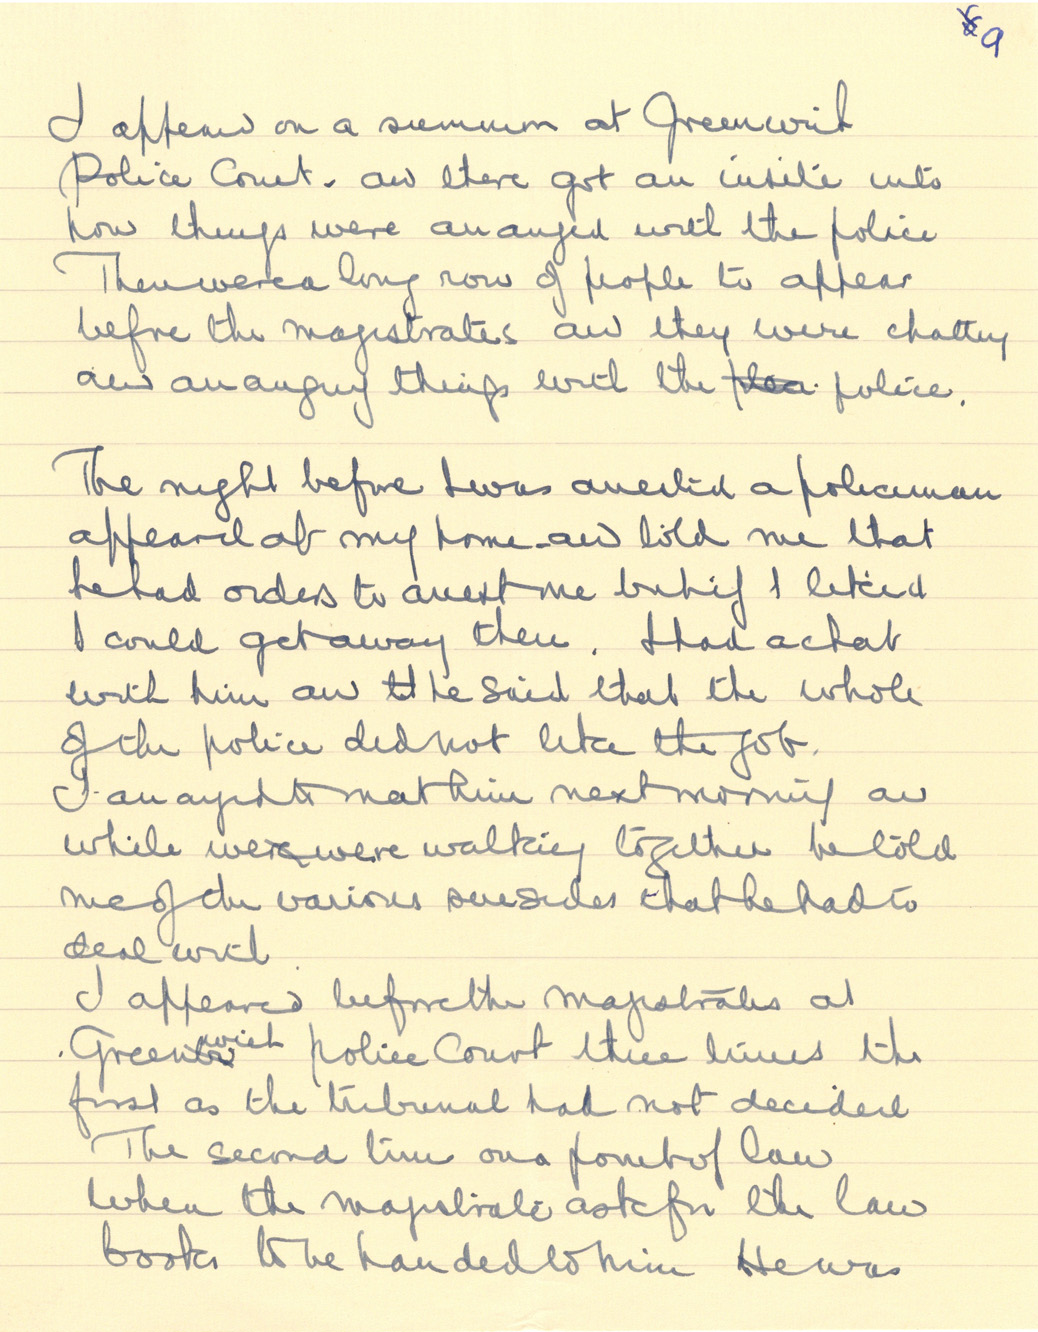 9
I appeard on a summon at Greenwich
Police Court. and there got an insite into
how things were arranged with the police
There were a long row of people to appear
before the magistrates and they were chatting
and arranging things with the police.
The night before I was arrested a policeman
appeared at my home and told me that
he had orders to arrest me but if I liked
I could get away then. I had a chat
with him and he said that the whole
of the police did not like the job.
I arranged to meet him next morning and
while we were walking together he told
me of the various suesides that he had to
deal with
I appeared before the magistrates at
Greenwich police Court three times the
first as the tribunal had not decided
The second time on a point of law
when the magistrate ask for the law
books to be handed to him He was